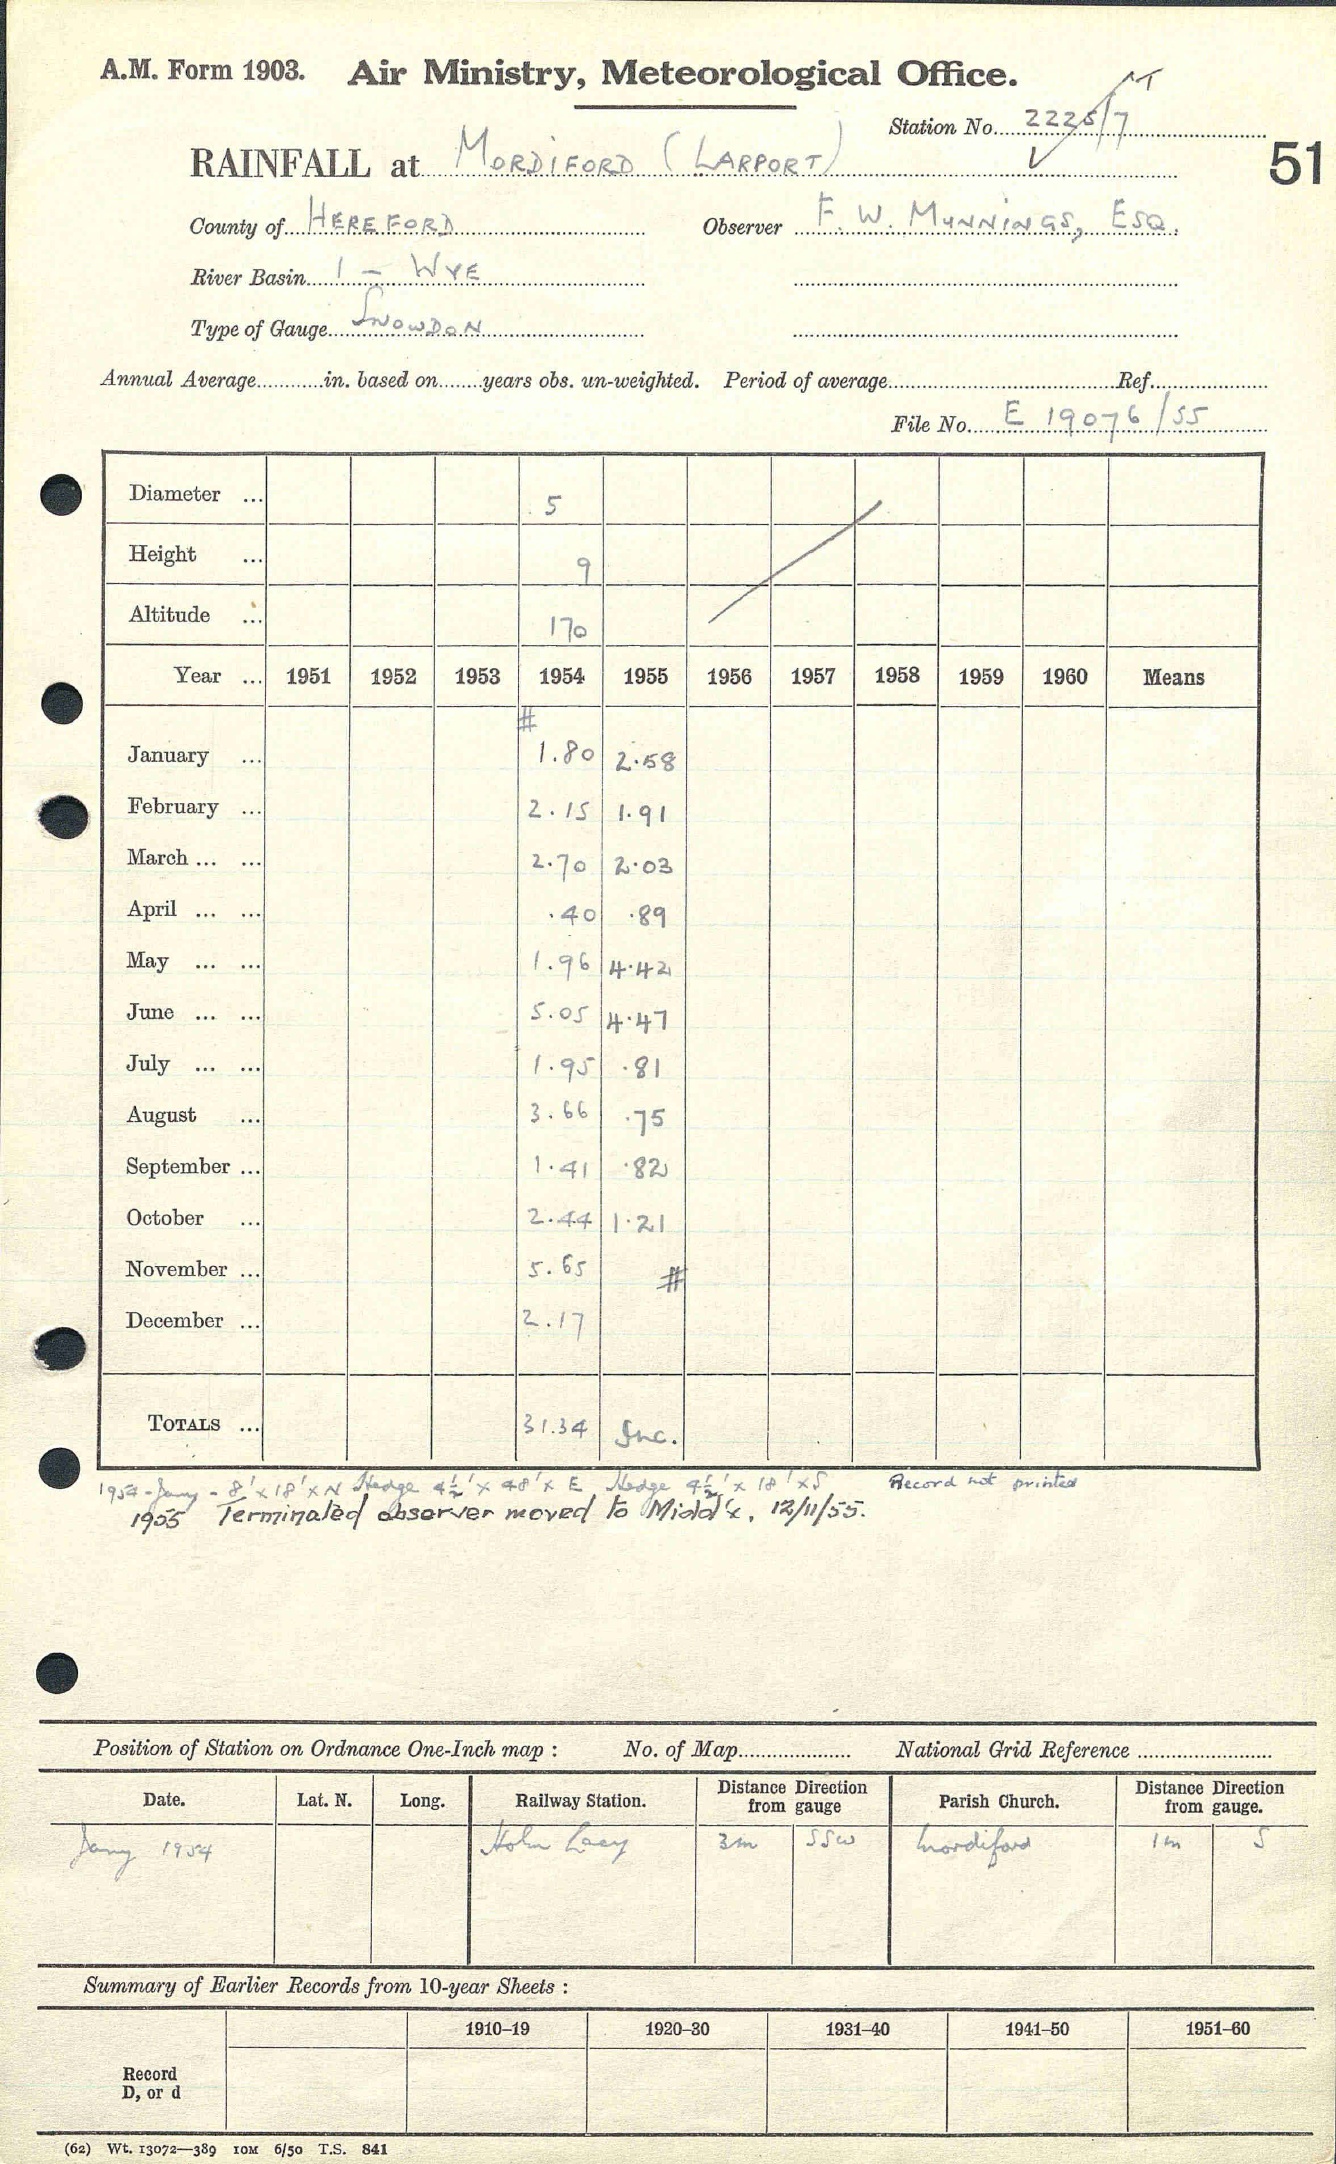 A.M. Form 1903. Air Ministry, Meteorological Office.
Station No. 2225/7
RAINFALL at MORDIFORD (LARPORT)
51
County of HEREFORD Observer F. W. MUNNINGS, ESQ.
River Basin 1 - WYE
Type of Gauge SNOWDON
Annual Average in. based on years obs. un-weighted. Period of average Ref.
File No. E 19076/55
Diameter ... 5
Height ... 9
Altitude ... 170
Year ... 1951 1952 1953 1954 1955 1956 1957 1958 1959 1960 Means
#
January ... 1.80 2.58
February ... 2.15 1.91
March ... ... 2.70 2.03
April ... ... .40 .89
May ... ... 1.96 4.42
June ... ... 5.05 4.47
July ... ... 1.95 .81
August ... 3.66 .75
September ... 1.41 .82
October ... 2.44 1.21
November ... 5.65 #
December ... 2.17
TOTALS ... 31.34 Inc.
1954 - Jany - 8' x 18' x N Hedge 4½' x 48' x E Hedge 4½' x 18' x S Record not printed
1955 Terminated observer moved to Midd'x, 12/11/55.
Position of Station on Ordnance One-Inch map : No. of Map National Grid Reference
Date. Lat. N. Long. Railway Station. Distance Direction from gauge Parish Church. Distance Direction from gauge.
Jany 1954 Holm Lacy 3m SSW Mordiford 1m S
Summary of Earlier Records from 10-year Sheets :
1910–19 1920–30 1931–40 1941–50 1951–60
Record
D, or d
(62) Wt. 13072—389 10M 6/50 T.S. 841